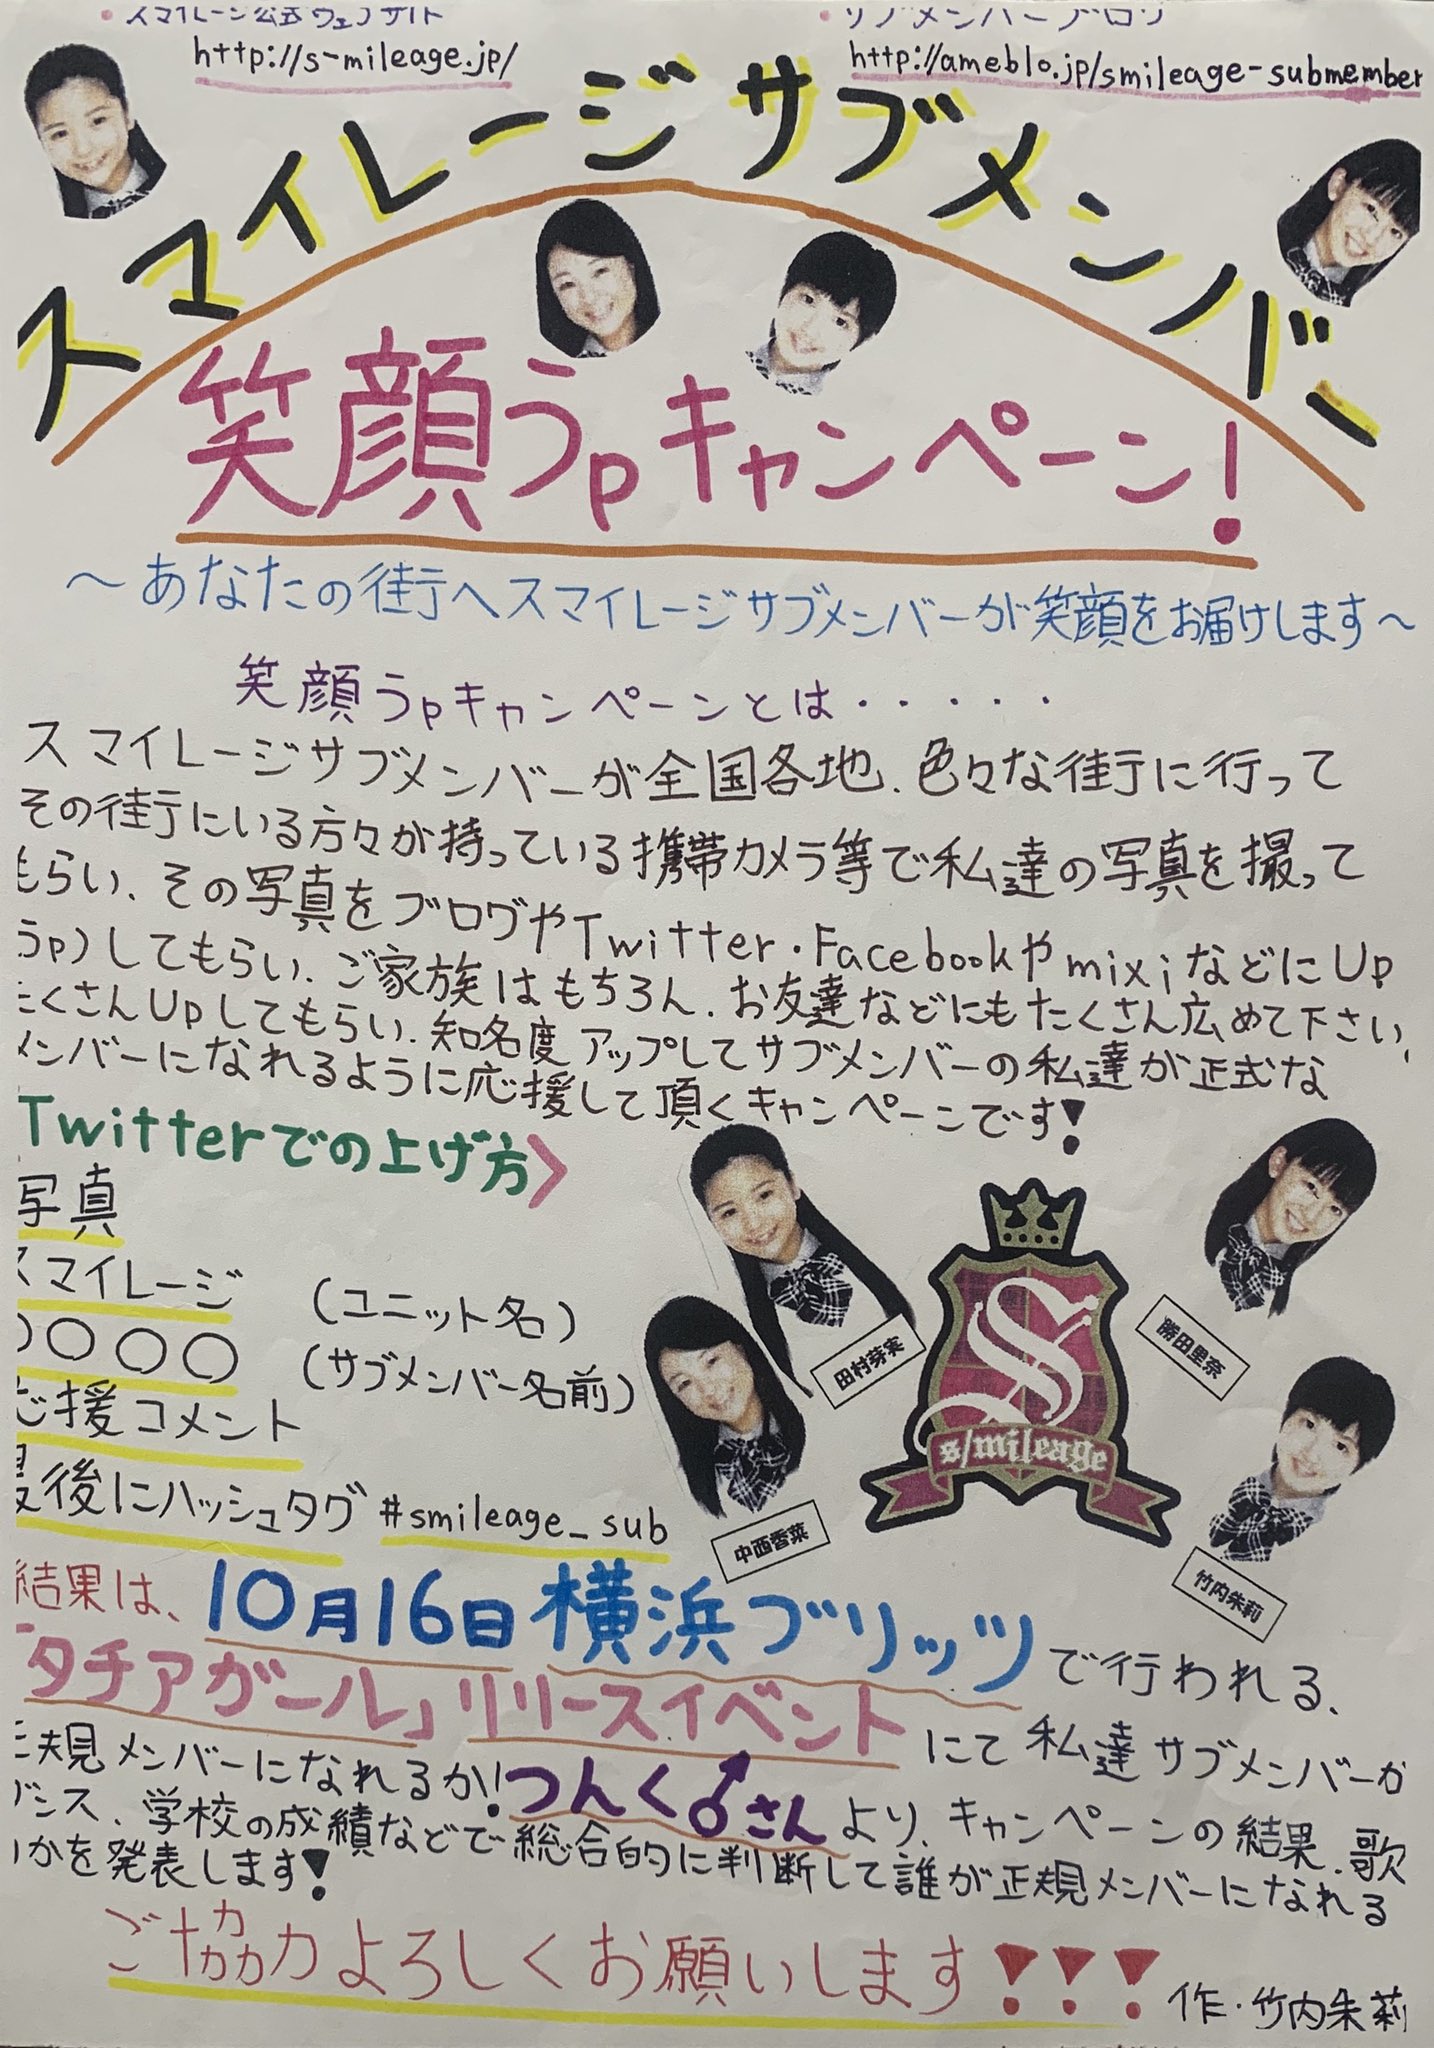 ・スマイレージ公式ウェブサイト
http://s-mileage.jp/
・サブメンバーブログ
http://ameblo.jp/smileage-submember
スマイレージサブメンバー
笑顔うpキャンペーン!
～あなたの街へスマイレージサブメンバーが笑顔をお届けします～
笑顔うpキャンペーンとは・・・・・
スマイレージサブメンバーが全国各地、色々な街に行って
その街にいる方々が持っている携帯カメラ等で私達の写真を撮って
もらい、その写真をブログやTwitter・FacebookやmixiなどにUp
うp)してもらい、ご家族はもちろん、お友達などにもたくさん広めて下さい、
たくさんUpしてもらい、知名度アップしてサブメンバーの私達が正式な
メンバーになれるように応援して頂くキャンペーンです!
Twitterでの上げ方>
写真
スマイレージ (ユニット名)
○○○○ (サブメンバー名前)
応援コメント
最後にハッシュタグ #smileage_sub
田村芽実
勝田里奈
中西香菜
竹内朱莉
S
s/mileage
結果は、10月16日横浜ブリッツで行われる、
「タチアガール」リリースイベントにて私達サブメンバーが
正規メンバーになれるか!つんく♂さんより、キャンペーンの結果、歌
ダンス、学校の成績などで総合的に判断して誰が正規メンバーになれる
かを発表します!
ご協力よろしくお願いします!!!
作・竹内朱莉